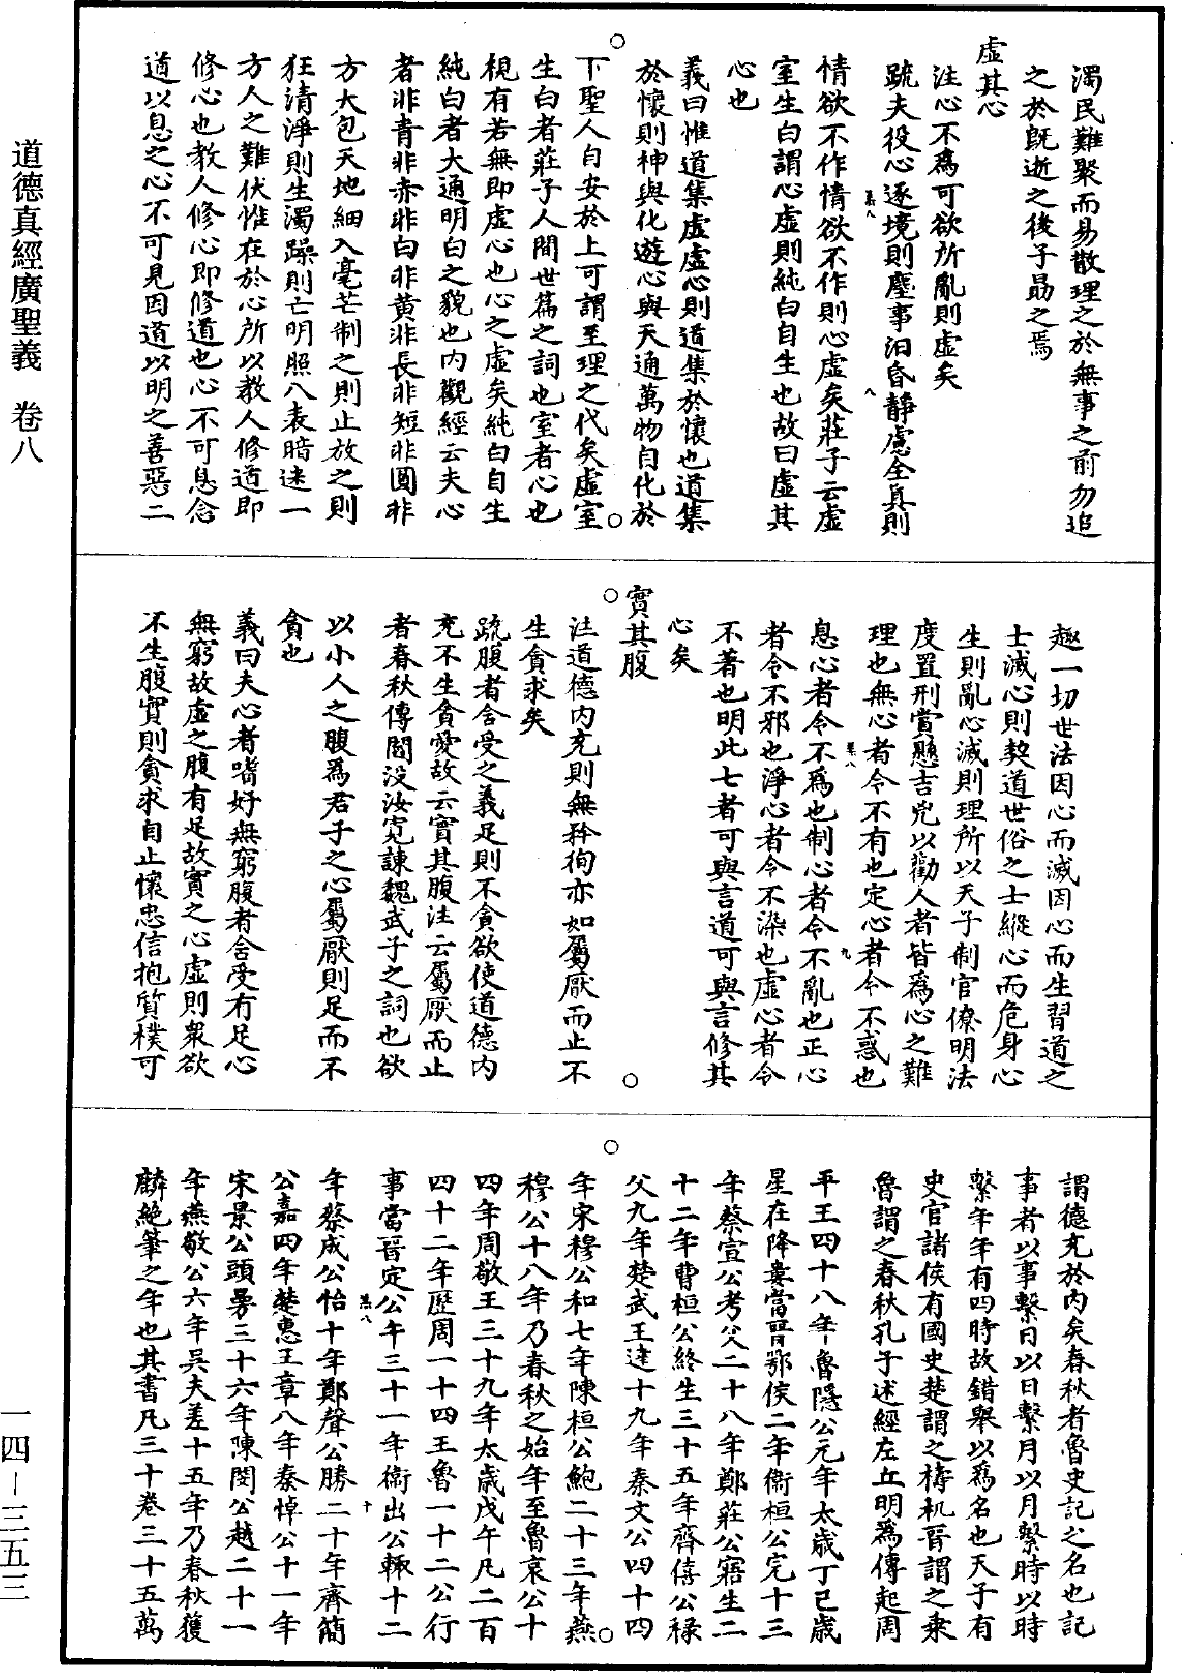 道德真經廣聖義　卷八
一四—三五三
濁民難聚而易散理之於無事之前勿追
之於旣逝之後子勗之焉
虛其心
注心不爲可欲所亂則虛矣
疏夫役心逐境則塵事汩昏靜慮全真則
情欲不作情欲不作則心虛矣莊子云虛
室生白謂心虛則純白自生也故曰虛其
心也
義曰惟道集虛虛心則道集於懷也道集
於懷則神與化遊心與天通萬物自化於
下聖人自安於上可謂至理之代矣虛室
生白者莊子人間世篇之詞也室者心也
視有若無即虛心也心之虛矣純白自生
純白者大通明白之貌也內觀經云夫心
者非青非赤非白非黄非長非短非圓非
方大包天地細入毫芒制之則止放之則
狂清淨則生濁躁則亡明照八表暗迷一
方人之難伏惟在於心所以教人修道即
修心也教人修心即修道也心不可息念
道以息之心不可見因道以明之善惡二
趣一切世法因心而滅因心而生習道之
士滅心則契道世俗之士縱心而危身心
生則亂心滅則理所以天子制官僚明法
度置刑賞懸吉兇以勸人者皆爲心之難
理也無心者令不有也定心者令不惑也
息心者令不爲也制心者令不亂也正心
者令不邪也淨心者令不染也虛心者令
不著也明此七者可與言道可與言修其
心矣
實其腹
注道德內充則無矜徇亦如屬厭而止不
生貪求矣
疏腹者含受之義足則不貪欲使道德內
充不生貪愛故云實其腹注云屬厭而止
者春秋傳閻没汝寬諫魏武子之詞也欲
以小人之腹爲君子之心屬厭則足而不
貪也
義曰夫心者嗜好無窮腹者含受有足心
無窮故虛之腹有足故實之心虛則衆欲
不生腹實則貪求自止懷忠信抱質樸可
謂德充於內矣春秋者魯史記之名也記
事者以事繫日以日繫月以月繫時以時
繫年年有四時故錯舉以爲名也天子有
史官諸侯有國史楚謂之檮杌晉謂之乘
魯謂之春秋孔子述經左丘明爲傳起周
平王四十八年魯隱公元年太歲丁巳歲
星在降婁當晉鄂侯二年衛桓公完十三
年蔡宣公考父二十八年鄭莊公寤生二
十二年曹桓公終生三十五年齊僖公祿
父九年楚武王達十九年秦文公四十四
年宋穆公和七年陳桓公鮑二十三年燕
穆公十八年乃春秋之始年至魯哀公十
四年周敬王三十九年太歲戊午凡二百
四十二年歷周一十四王魯一十二公行
事當晉定公午三十一年衛出公輒十二
年蔡成公怡十年鄭聲公勝二十年齊簡
公嘉四年楚惠王章八年秦悼公十一年
宋景公頭曼三十六年陳閔公越二十一
年燕敬公六年吳夫差十五年乃春秋獲
麟絕筆之年也其書凡三十卷三十五萬